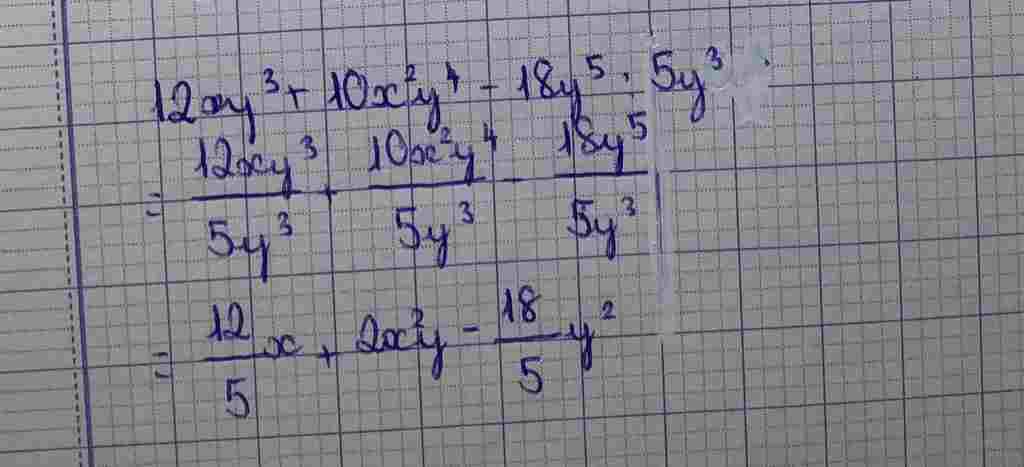 12xy³ + 10x²y⁴ - 18y⁵ : 5y³
= 12xy³/5y³ + 10x²y⁴/5y³ - 18y⁵/5y³
= 12/5 x + 2x²y - 18/5 y²